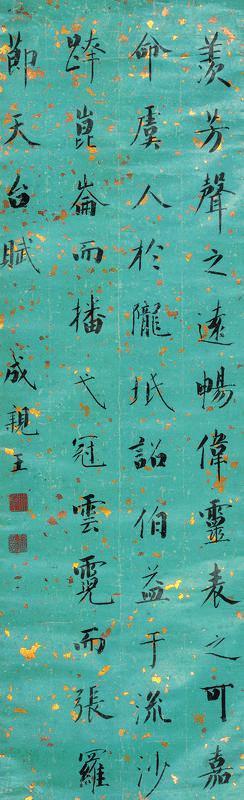 羨芳聲之遠暢偉靈表之可嘉
命虞人於隴坻詔伯益于流沙
跨崑崙而播弋冠雲霓而張羅
節天台賦 成親王